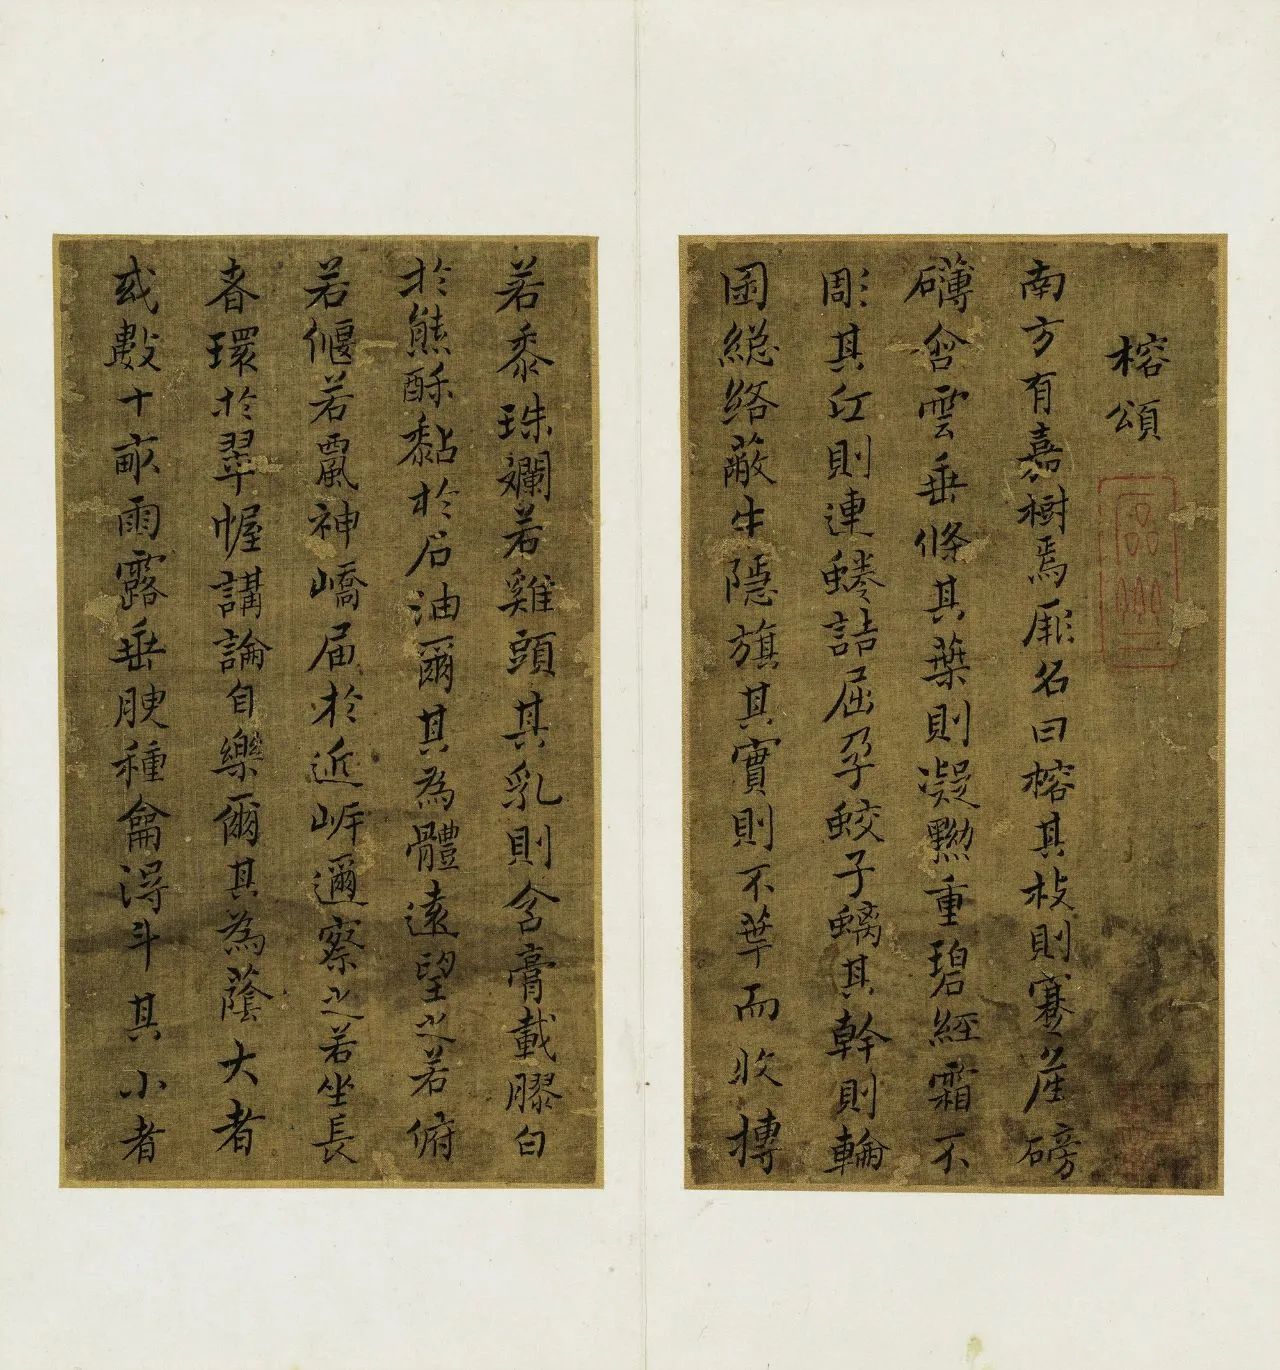 榕頌
南方有嘉樹焉厥名曰榕其枝則蹇產磅
礴含雲垂條其葉則凝黝重碧經霜不
彫其丘則連蜷詰屈孕子蛟子螭其幹則輪
囷緦絡蔽牛隱旗其實則不華而收摶
若黍珠斕若雞頭其乳則含膏載膠白
於熊酥黏於石油爾其為體遠望之若俯
若偃若鳳神嶠屆於近岸邇察之若坐長
者環於翠幄講論自樂爾其為蔭大者
或數十畝雨露垂腴種龠得斗其小者